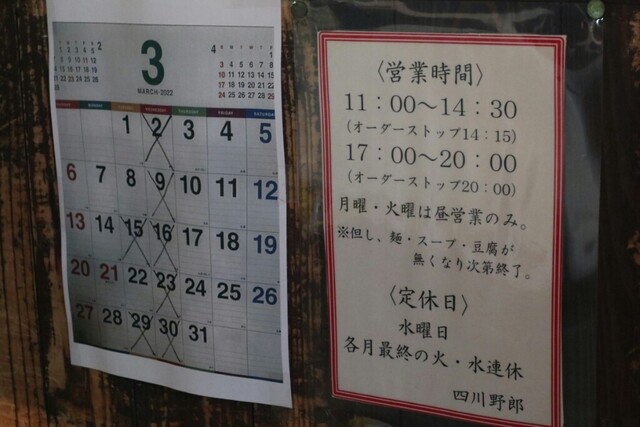 3
MARCH・2022
4
1 2 3 4 5
6 7 8 9 10 11 12
13 14 15 16 17 18 19
20 21 22 23 24 25 26
27 28 29 30 31
〈営業時間〉
11：00〜14：30
(オーダーストップ14：15)
17：00〜20：00
(オーダーストップ20：00)
月曜・火曜は昼営業のみ。
※但し、麺・スープ・豆腐が
無くなり次第終了。
〈定休日〉
水曜日
各月最終の火・水連休
四川野郎